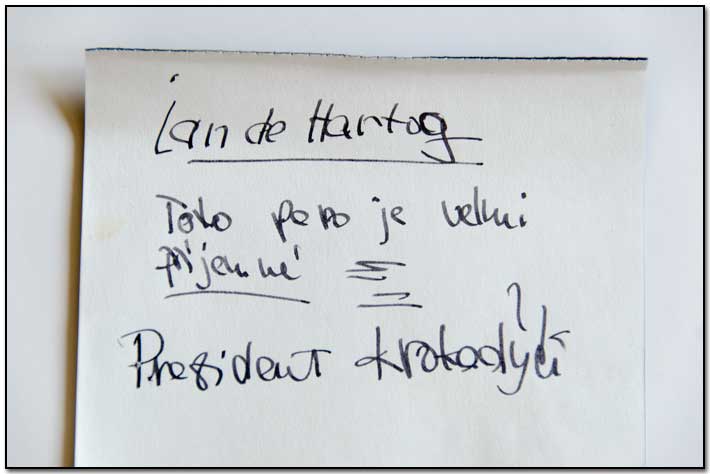 Jan de Hartog
Toto pero je velmi
příjemné
President krokodýlů